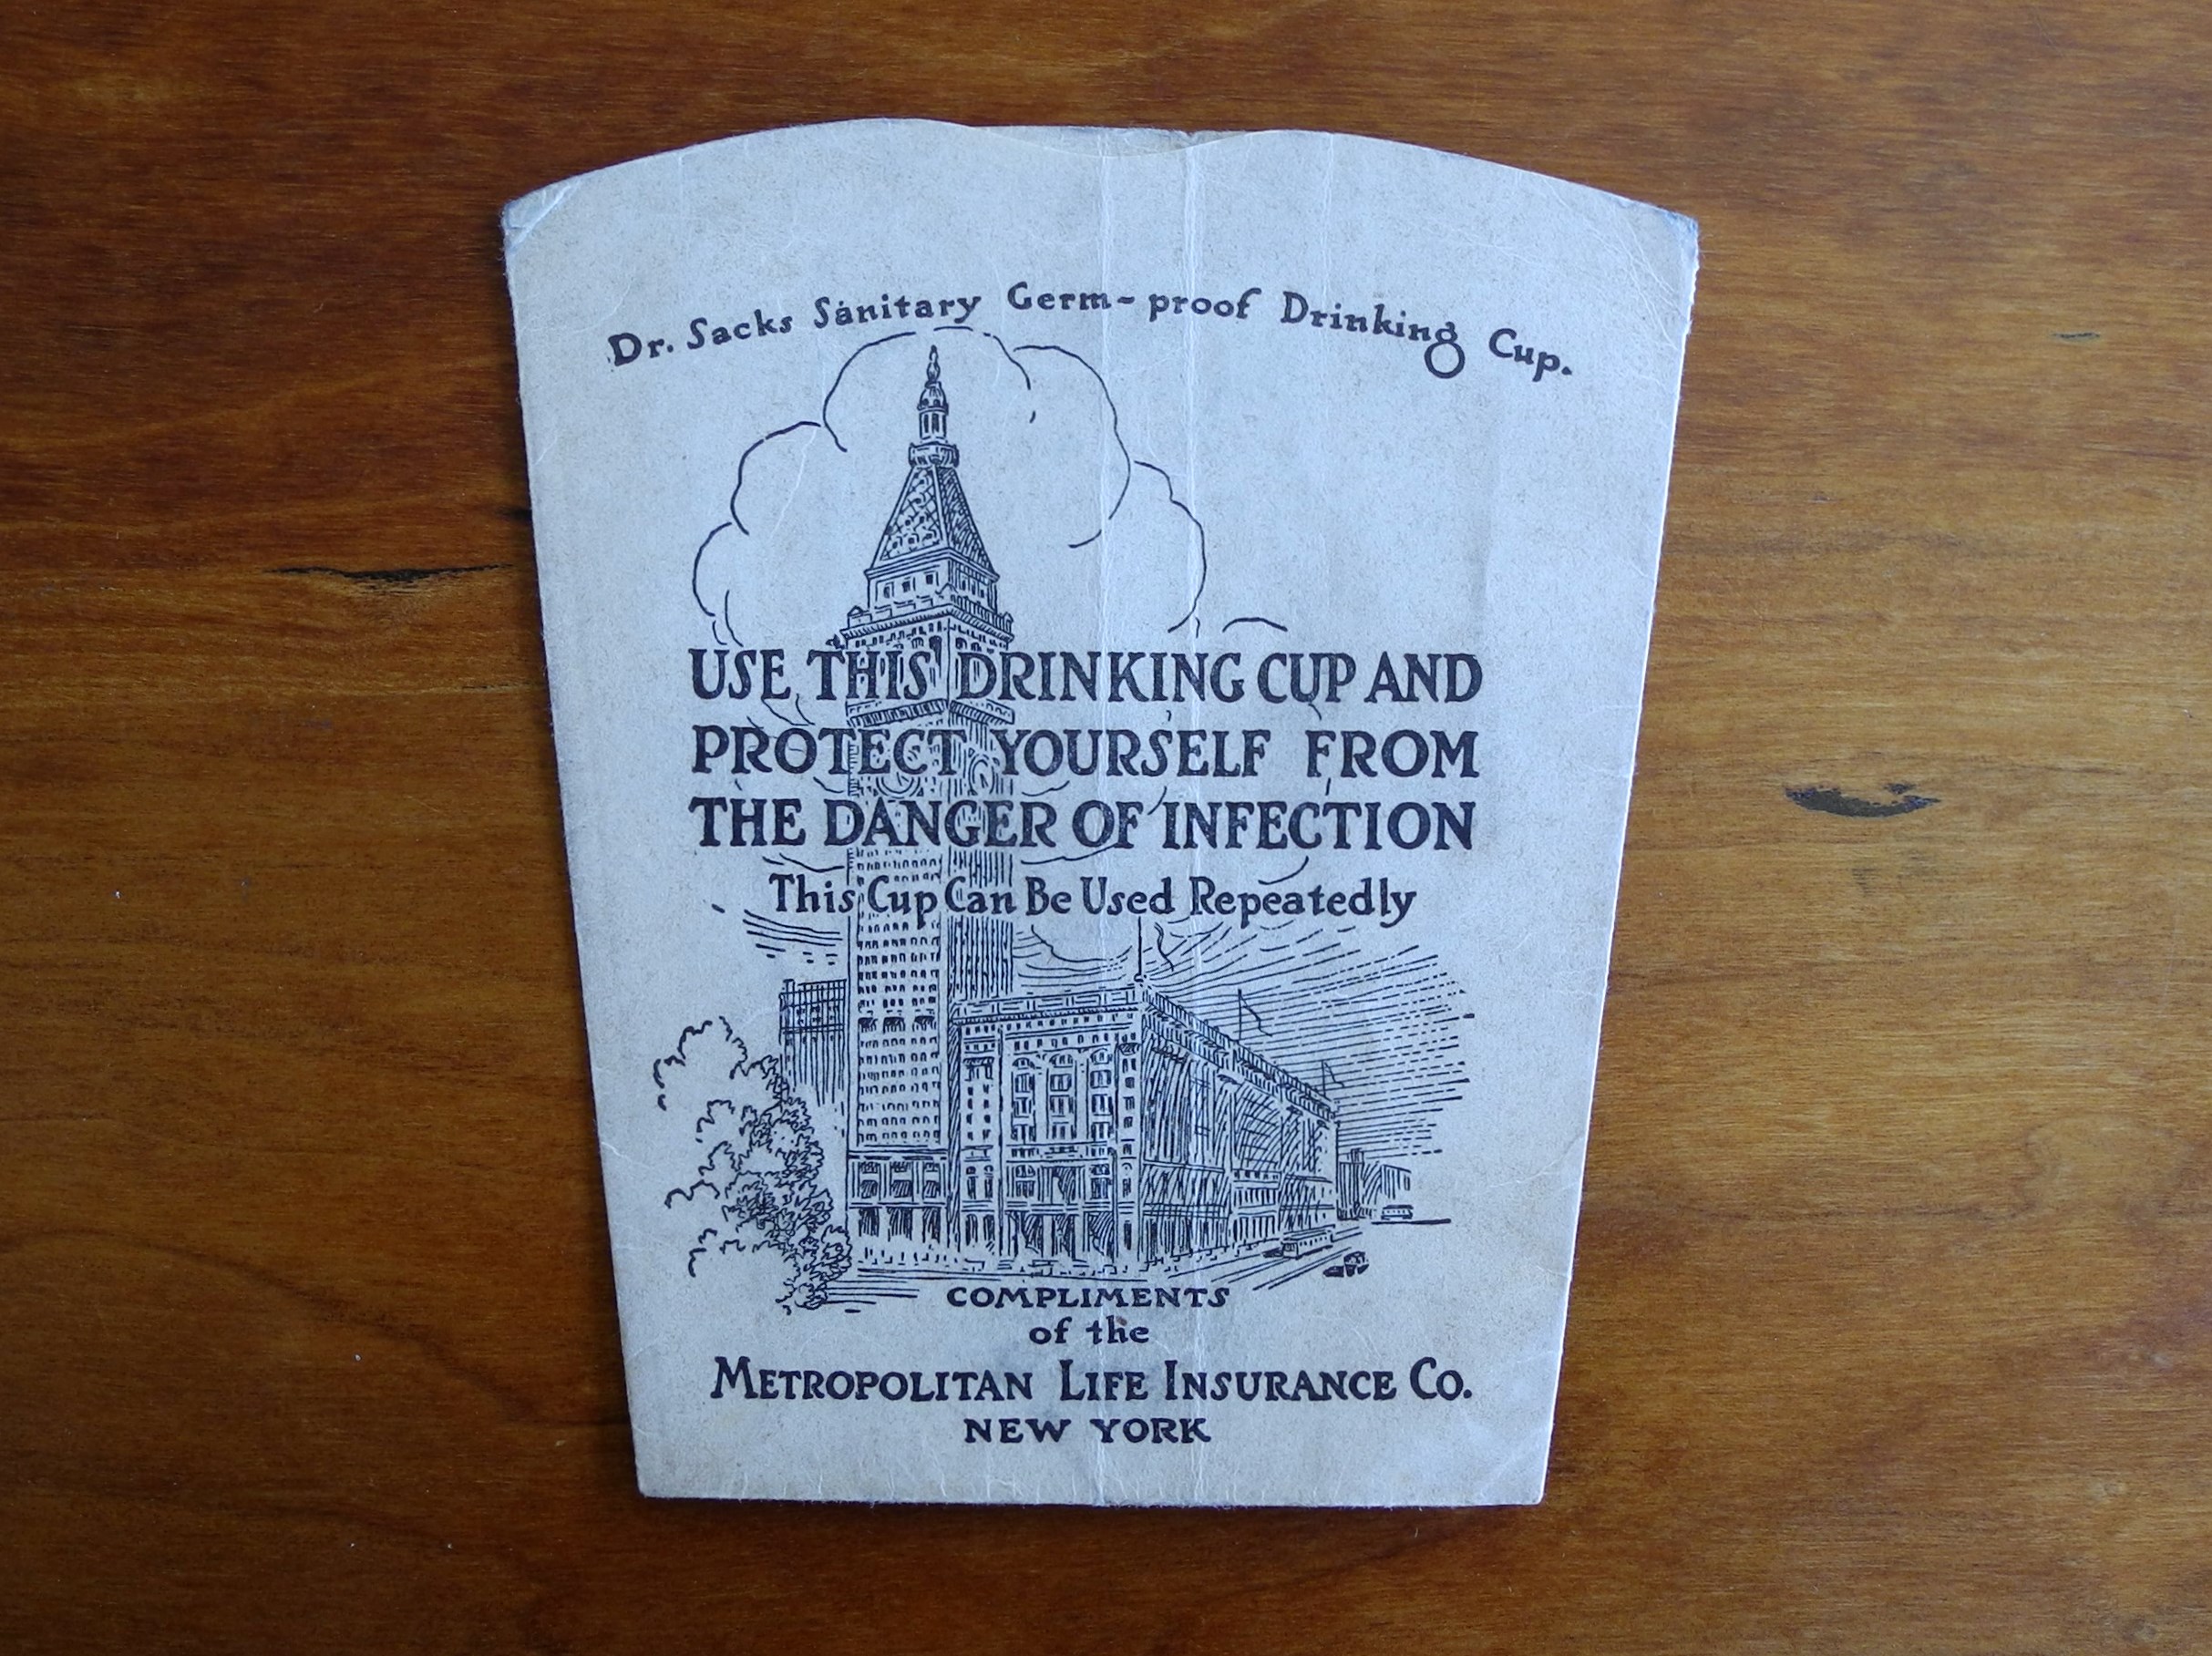 Dr. Sacks Sanitary Germ-proof Drinking Cup.
USE THIS DRINKING CUP AND
PROTECT YOURSELF FROM
THE DANGER OF INFECTION
This Cup Can Be Used Repeatedly
COMPLIMENTS
of the
METROPOLITAN LIFE INSURANCE CO.
NEW YORK